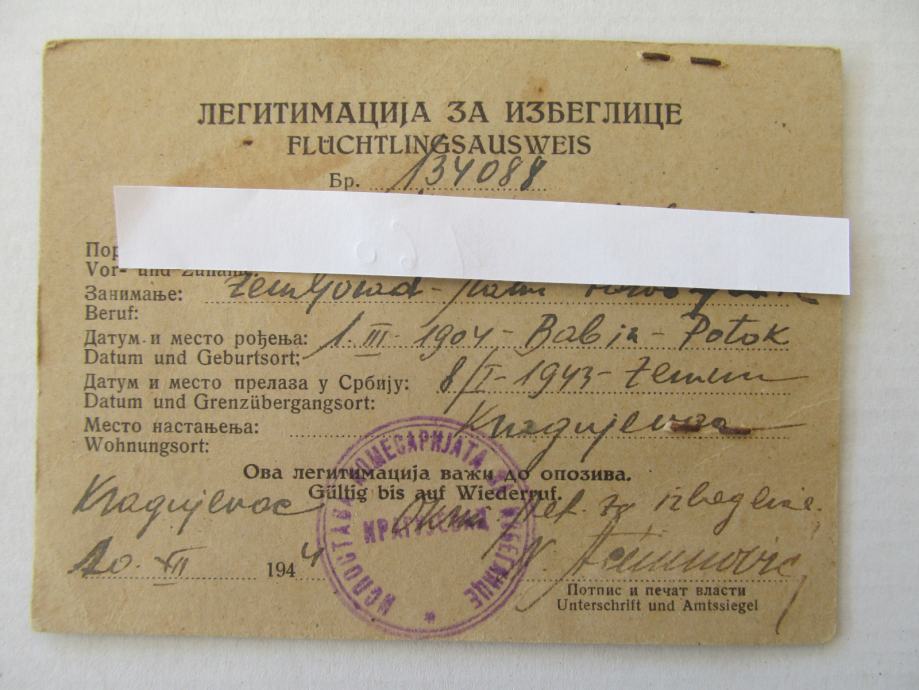 ЛЕГИТИМАЦИЈА ЗА ИЗБЕГЛИЦЕ
FLÜCHTLINGSAUSWEIS
Бр. 134088
Vor- und
Занимање:
Beruf:
Датум и место рођења: 1. III - 1904 - Babin - Potok
Datum und Geburtsort:
Датум и место прелаза у Србију: 8/I - 1943 - Zemun
Datum und Grenzübergangsort:
Место настањења: Kragujevac
Wohnungsort:
Ова легитимација важи до опозива.
Gültig bis auf Wiederruf.
Kragujevac za izbeglice.
20. XII 1944
Потпис и печат власти
Unterschrift und Amtssiegel
ИСПОСТАВА КОМЕСАРИЈАТА ЗА ИЗБЕГЛИЦЕ
КРАГУЈЕВАЦ